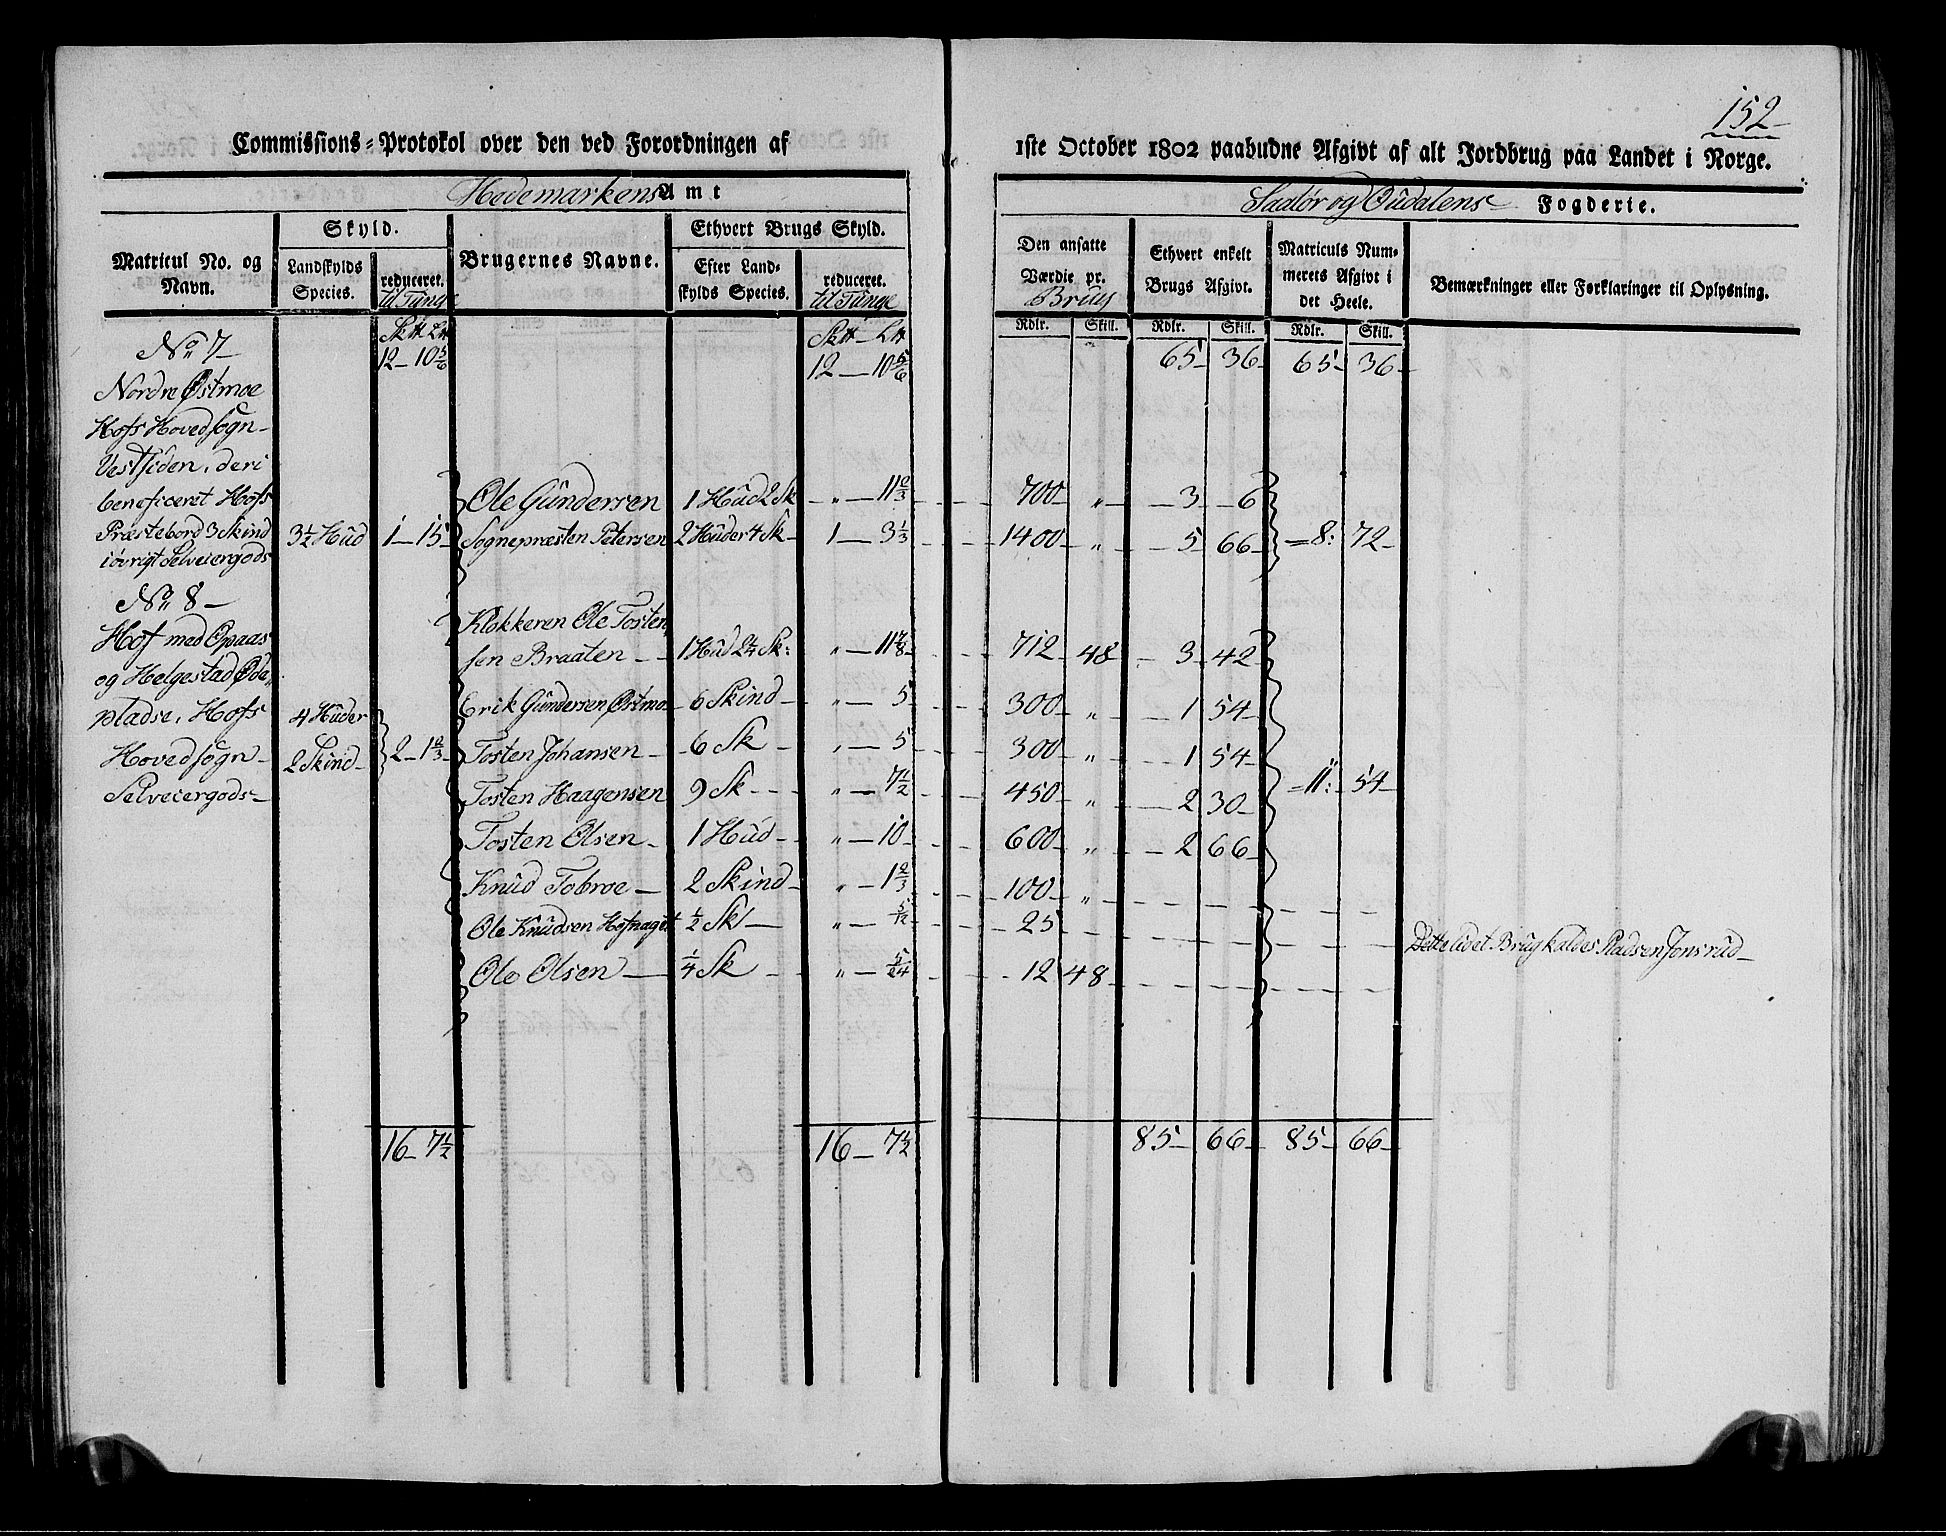 152
Commissions-Protokol over den ved Forordningen af 1ste October 1802 paabudne Afgivt af alt Jordbrug paa Landet i Norge.
Hedemarkens Amt Soløer og Oudalens Fogderie.
Matricul No. og Navn. Skyld. Landskylds Species. reduceret. til Tunge
Brugernes Navne. Ethvert Brugs Skyld. Efter Landskylds Species. reduceret. til Tunge
Den ansatte Værdie pr. Brug Ethvert enkelt Brugs Afgivt. Matriculs Nummerets Afgivt i det Heele. Bemærkninger eller Forklaringer til Oplysning.
Rdlr. Skill. Rdlr. Skill. Rdlr. Skill.
No 7 12 — 10 5/6 12 — 10 5/6 65 36 65 36
Nordre Østmoe
Hofs Hovedsogn
Vestsiden, deri
beneficeret Hofs Ole Gundersen 1 Hud 2 Sk — " — 11 2/3 700 " 3 6
Præstebord 3 Skind 3 1/2 Hud 1 — 15 Sognepræsten Petersen 2 Huder 4 Sk — 1 — 3 1/3 1400 " 5 66 = 8: 72
i øvrigt Selveiergods
No 8
Hof med Opaas Klokkeren Ole Tosten
og Helgestad Øde sen Braaten — 1 Hud 2 1/4 Sk: " — 11 7/8 712 48 3 42
pladse, Hofs 4 Huder Erik Gundersen Østmo 6 Skind — " — 5 300 " 1 54
Hovedsogn 2 Skind 2 — 1 2/3 Tosten Johansen — 6 Sk — " — 5 300 " 1 54
Selveiergods Tosten Haagensen 9 Sk — " — 7 1/2 450 " 2 30 = 11: 54
Tosten Olsen — 1 Hud — " — 10 600 " 2 66
Knud Tobroe — 2 Skind — " — 1 2/3 100 "
Ole Knudsen 1/2 Sk — " — 5/12 25 Dette lidet Brug kaldes Pladsen Jonsrud
Ole Olsen — 1/4 Sk — " — 5/24 12 48
16 — 7 1/2 16 — 7 1/2 85 66 85 66